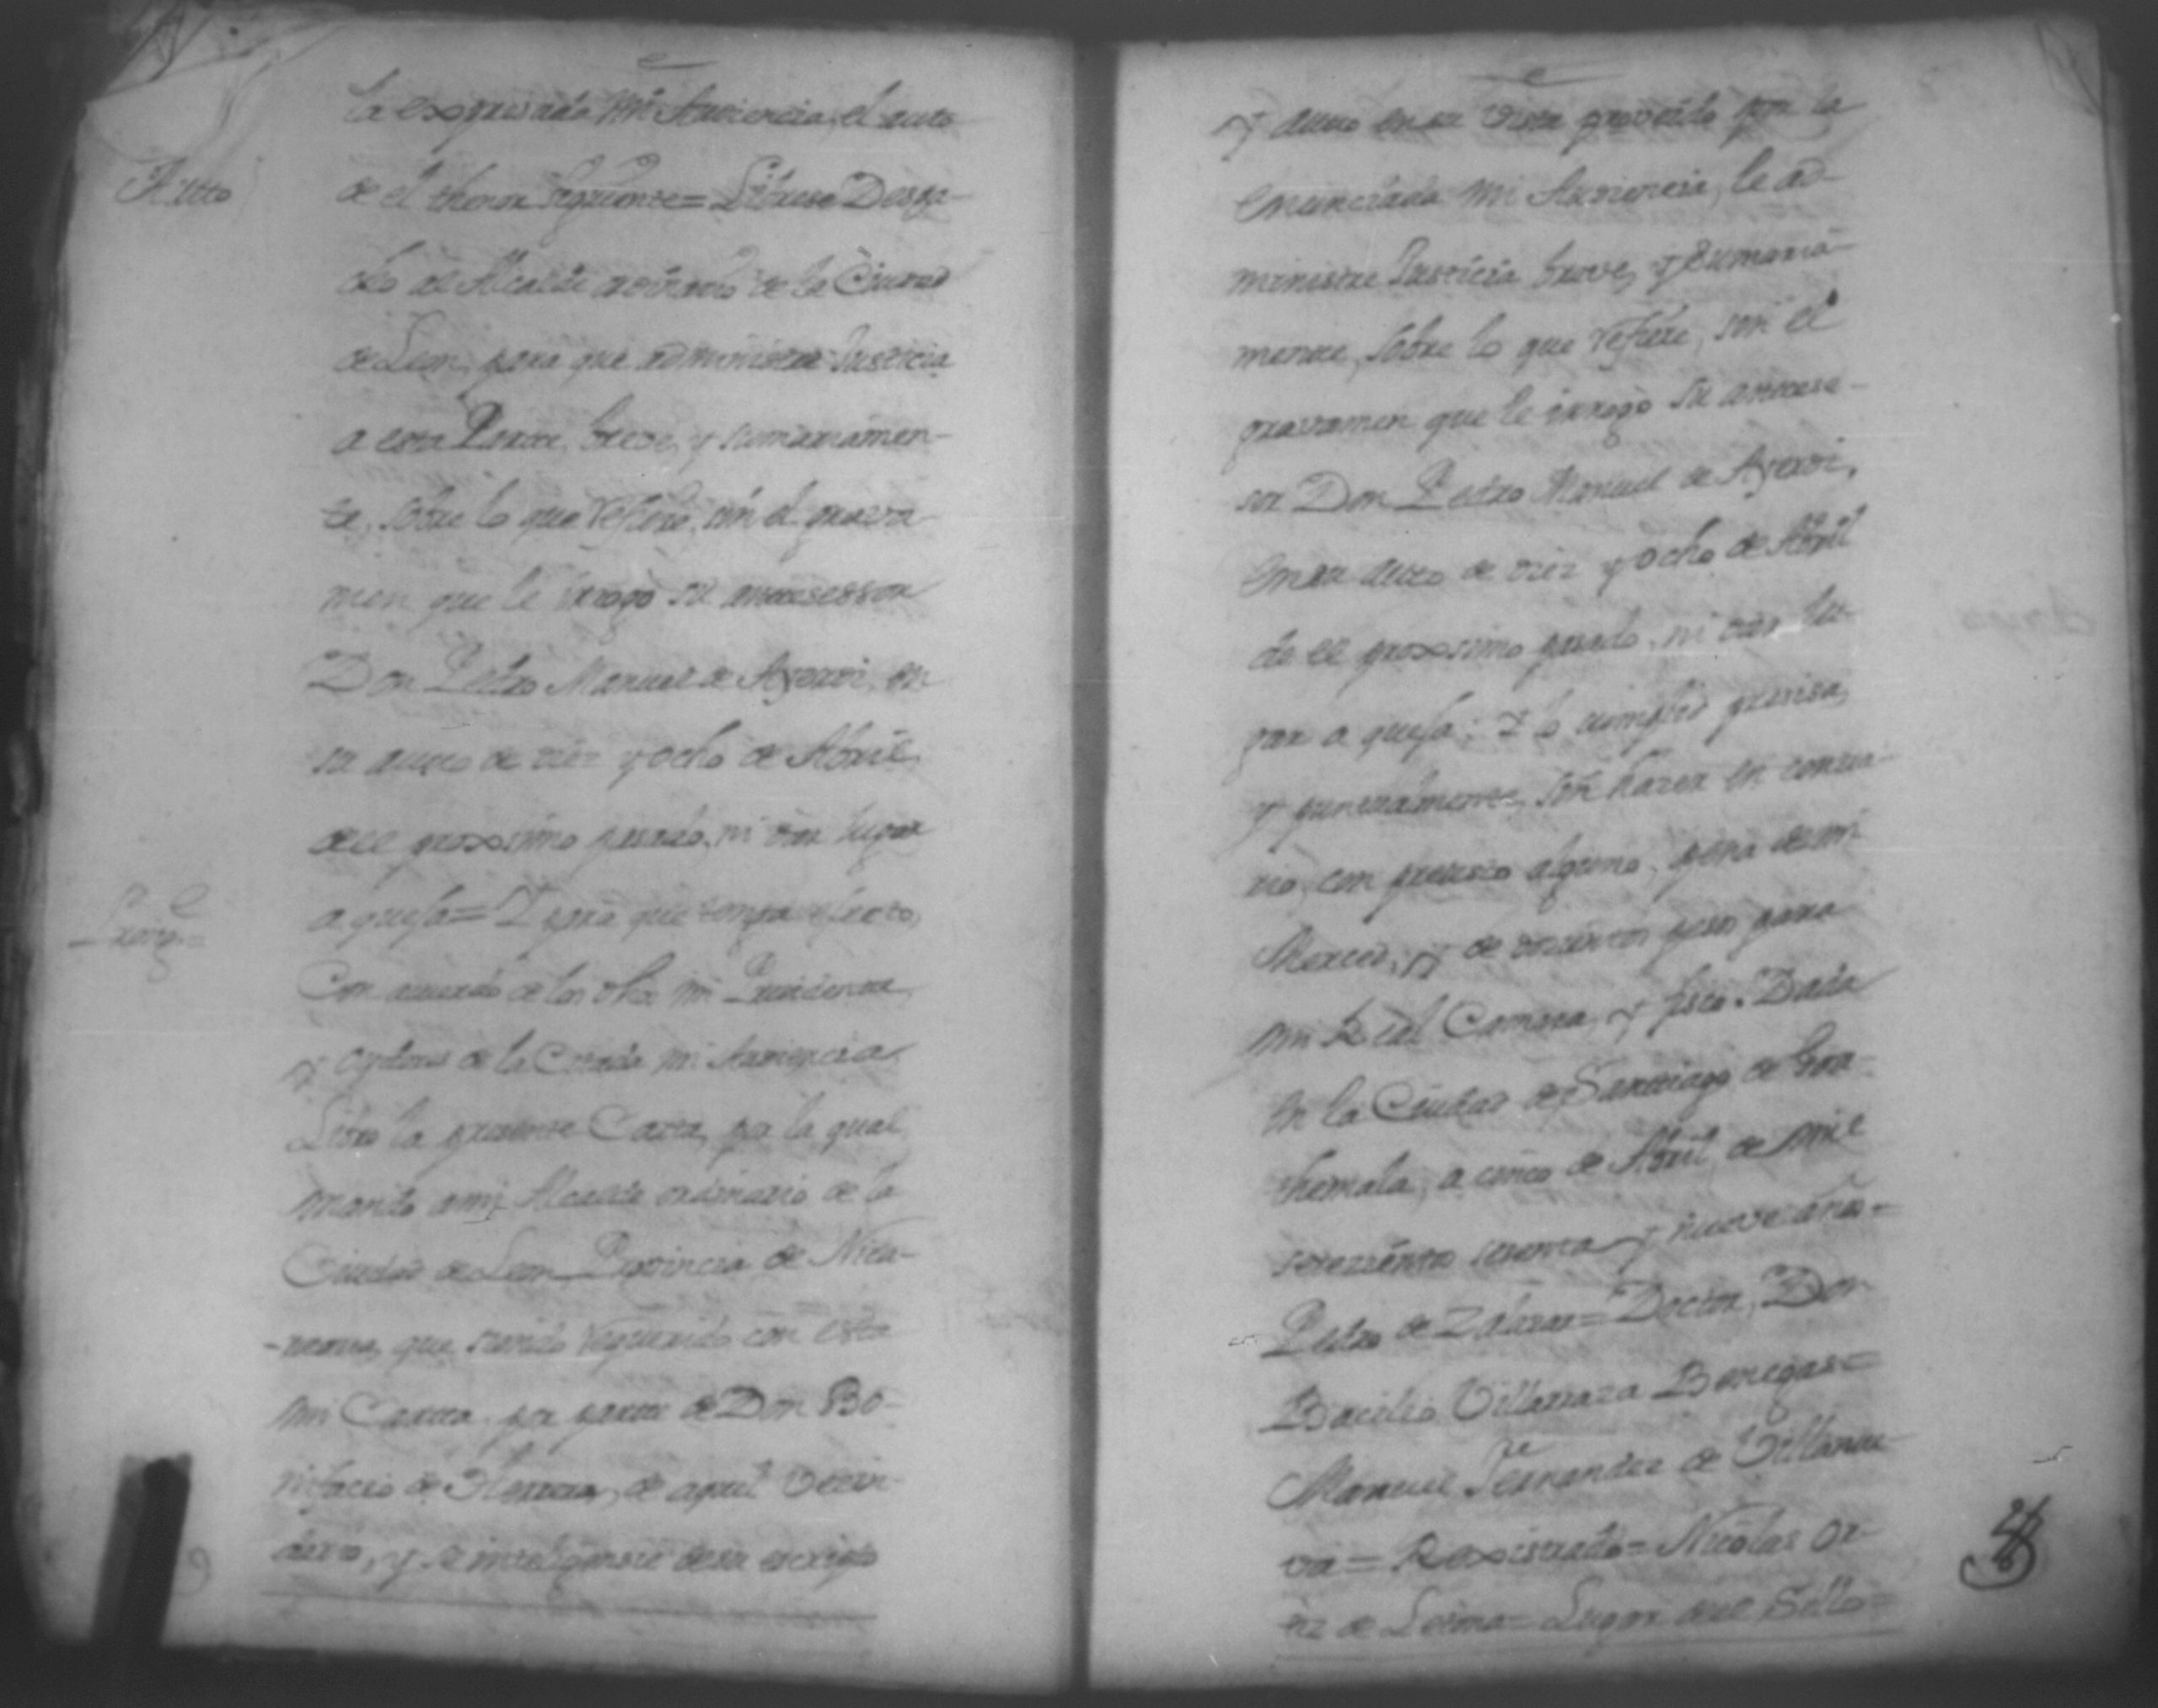 la expresada mi Audiencia, el auto
Autto
de el thenor siguiente= Librese Despa-
cho al Alcalde ordinario de la Ciudad
de Leon, para que administre Justicia
a esta Partte, breve, y sumariamen-
te, sobre lo que refiere, sin el grava-
men que le irrogó su antecessor
Don Pedro Manuel de Ayerdi, en
su autto de diez y ocho de Abril
de el proximo pasado, ni dar lugar
a quexa= Y para que tenga efecto,
Con acuerdo de los dhos mi Presidente
y oydores de la Citada mi Audiencia
Libro la presente Carta, por la qual
mando a mi Alcalde ordinario de la
Ciudad de Leon Provincia de Nica-
-ragua, que siendo requerido con esta
mi Cartta, por partte de Don Bo-
nifacio de Herrera, de aquel Vecin-
dario, y se inteligencie de su escripto
y autto en su vista proveido por la
enunciada mi Audiencia, le ad-
ministre Justicia breve, y sumaria-
mente, sobre lo que refiere, sin el
gravamen que le irrogó su anteces-
sor Don Pedro Manuel de Ayerdi,
en su autto de diez y ocho de Abril
de el proximo pasado, ni dar lu-
gar a quexa; Y lo cumplid precisa,
y puntualmente, sin hazer en contra-
rio, con pretexto alguno, pena de mi
Merced, y de docientos pesos para
mi Real Camara, y fisco. Dada
en la Ciudad de Santtiago de Goa-
themala, a cinco de Abril de mil
setezientos sesenta y nueve años=
Pedro de Zalazar= Doctor, Don
Bacilio Villarraza Benegas=
Manuel Fernandez de Villanue-
va= Rexistrado= Nicolas Or-
tiz de Letona= Lugar del Sello=